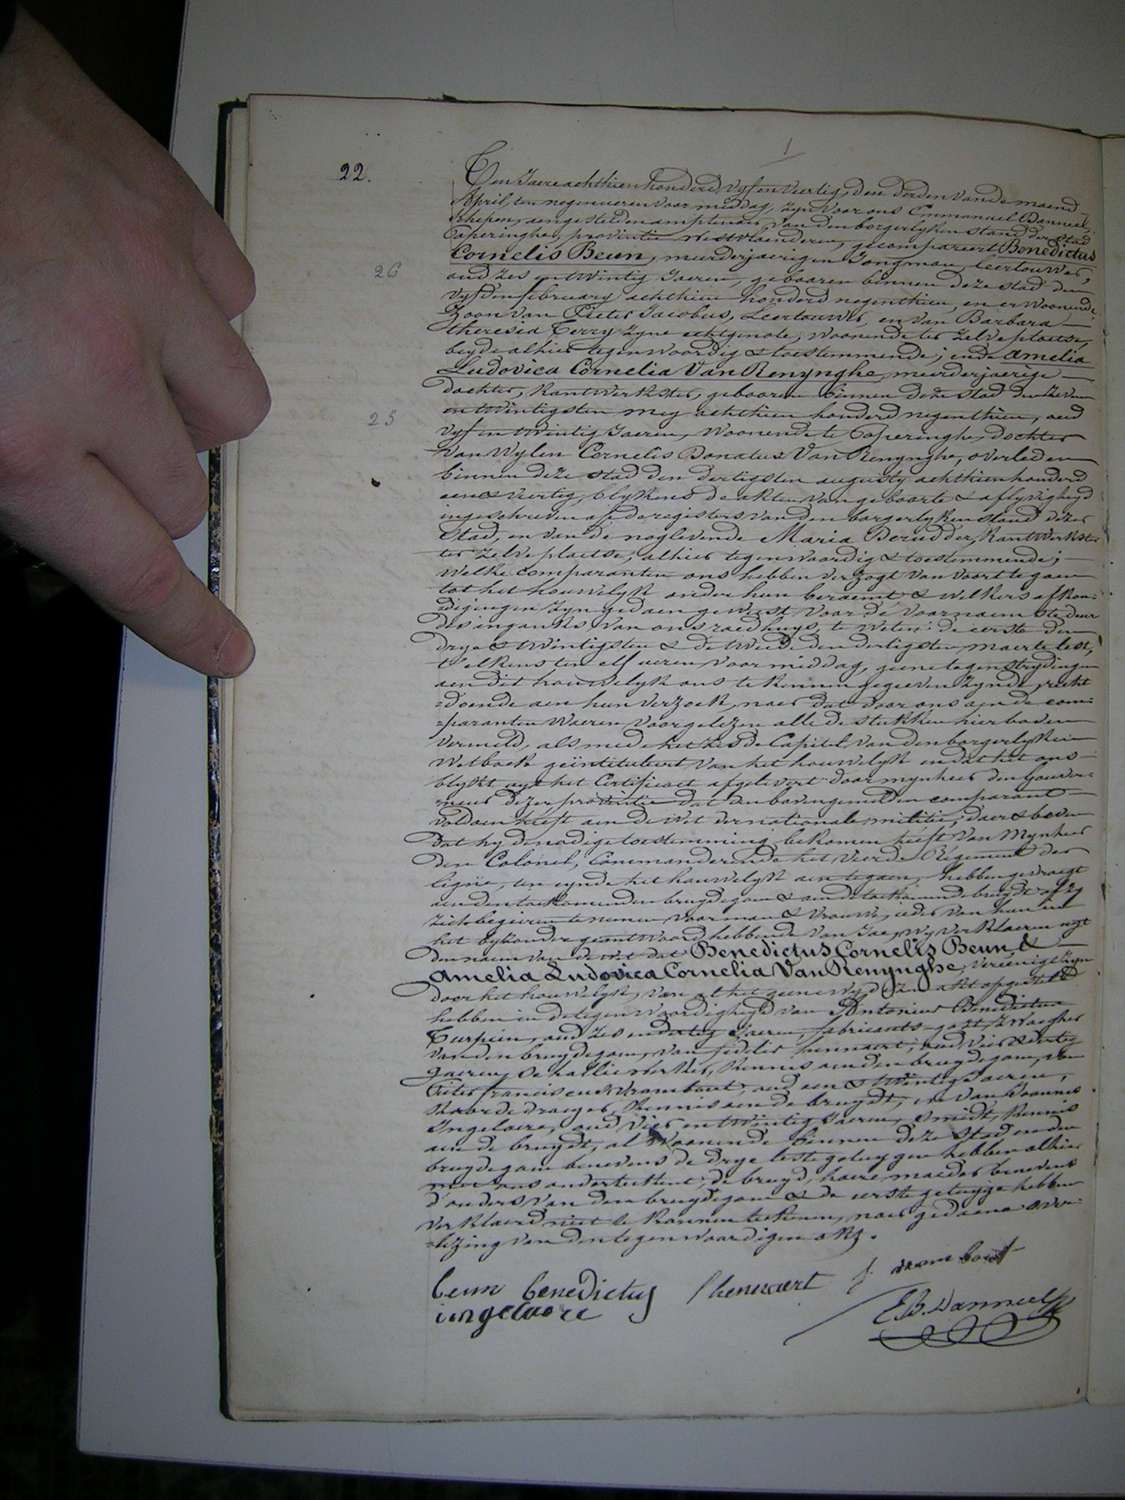 22.
Ten Jaere achthien honderd vyf en veertig, den derden van de maend
April, ten negen ueren voor middag, zyn voor ons Emmanuel Danneel,
Schepen, aengestelden amptenaer van den borgerlyken stand der Stad
Poperinghe, provintie Westvlaenderen, gecompareert Benedictus
Cornelis Beun, meerderjaerigen Jongman, Leertouwer,
26
oud zes en twintig Jaeren, gebooren binnen deze stad den
vyfden february achthien honderd negenthien, en er woonende,
Zoon van Pieter Jacobus, Leertouwer, en van Barbara
Theresia Terry zyne echtgenote, woonende ter zelve plaetse,
beyde alhier tegenwoordig & toestemmende; ende Amelia
Ludovica Cornelia Van Renynghe, meerderjaerige
dochter, Kantwerkster, gebooren binnen deze stad den zeven
25
en twintigsten mey achthien honderd negenthien, oud
vyf en twintig Jaeren, woonende te Poperinghe, dochter
van wylen Cornelis Donatus Van Renynghe, overleden
binnen deze stad den dertigsten augusty achthien honderd
een & veertig, blykens de akten van geboorte & aflyvigheyd
ingeschreven op de registers van den borgerlyken stand dezer
Stad, en van de noglevende Maria Deridder, Kantwerkster
ter zelve plaetse, alhier tegenwoordig & toestemmende;
Welke comparanten ons hebben verzogt van voort te gaen
tot het houwelyk onder hun beraemt & welkers afkon-
digingen zyn gedaen geweest voor de voornaemste deur
des ingangs van ons raedhuys, te weten: de eerste den
drye & twintigsten & de tweede den dertigsten maerte lest,
t'elkens ten elf ueren voor middag, geene tegenstrydingen
aen dit houwelyk ons te kennen gegeven zynde, recht
doende aen hun verzoek, naer dat door ons aen de com-
paranten waeren voorgelezen alle de stukken hier boven
vermeld, als mede het zesde Capitel van den borgerlyken
Wetboek geïntituleert van het houwelyk en dat het ons
blykt uyt het Certificaet afgelevert door mynheer den Gouver-
neur dezer provintie dat den bovengemelden comparant
voldaen heeft aen de wet der nationale militie; daer & boven
dat hy de noodige toestemming bekomen heeft van Mynheer
den Colonel, Commanderende het vierde Regiment der
ligne, ten eynde het houwelyk aen te gaen, hebben gevraegt
aen den toekomenden bruydegom & aen de toekomende bruydt of zy
zich begeeren te nemen voor man & vrouwe, ieder van hun in
het byzonder geantwoord hebbende van Jae, wy verklaeren uyt
den naem van de wet dat Benedictus Cornelis Beun &
Amelia Ludovica Cornelia Van Renynghe, vereenigt zyn
door het houwelyk, van al het geene wy deze akt opgestelt
hebben in de tegenwoordigheyd van Antonius Benedictus
Turpein, oud zes en dertig Jaeren, fabricant, zwaegher
van den bruydegom, van fidelis hennaert, oud vier & dertig
Jaeren, kennis aen den bruydegom, van
Pieter francis en oud een & twintig Jaeren,
kennis aen de bruydt, en van Joannes
Ingelaere, oud vier en twintig Jaeren, Smidt, kennis
aen de bruydt, al woonende binnen deze stad en den
bruydegom benevens de drye leste getuygen hebben alhier
met ons onderteekent, de bruyd, haere moeder benevens
d'ouders van den bruydegom & de eerste getuyge hebben
verklaerd niet te konnen teekenen, naer gedaene over-
lezing van den tegenwoordigen akt.
beun benedictus f henneert f
ingelaere
E.B. Danneel